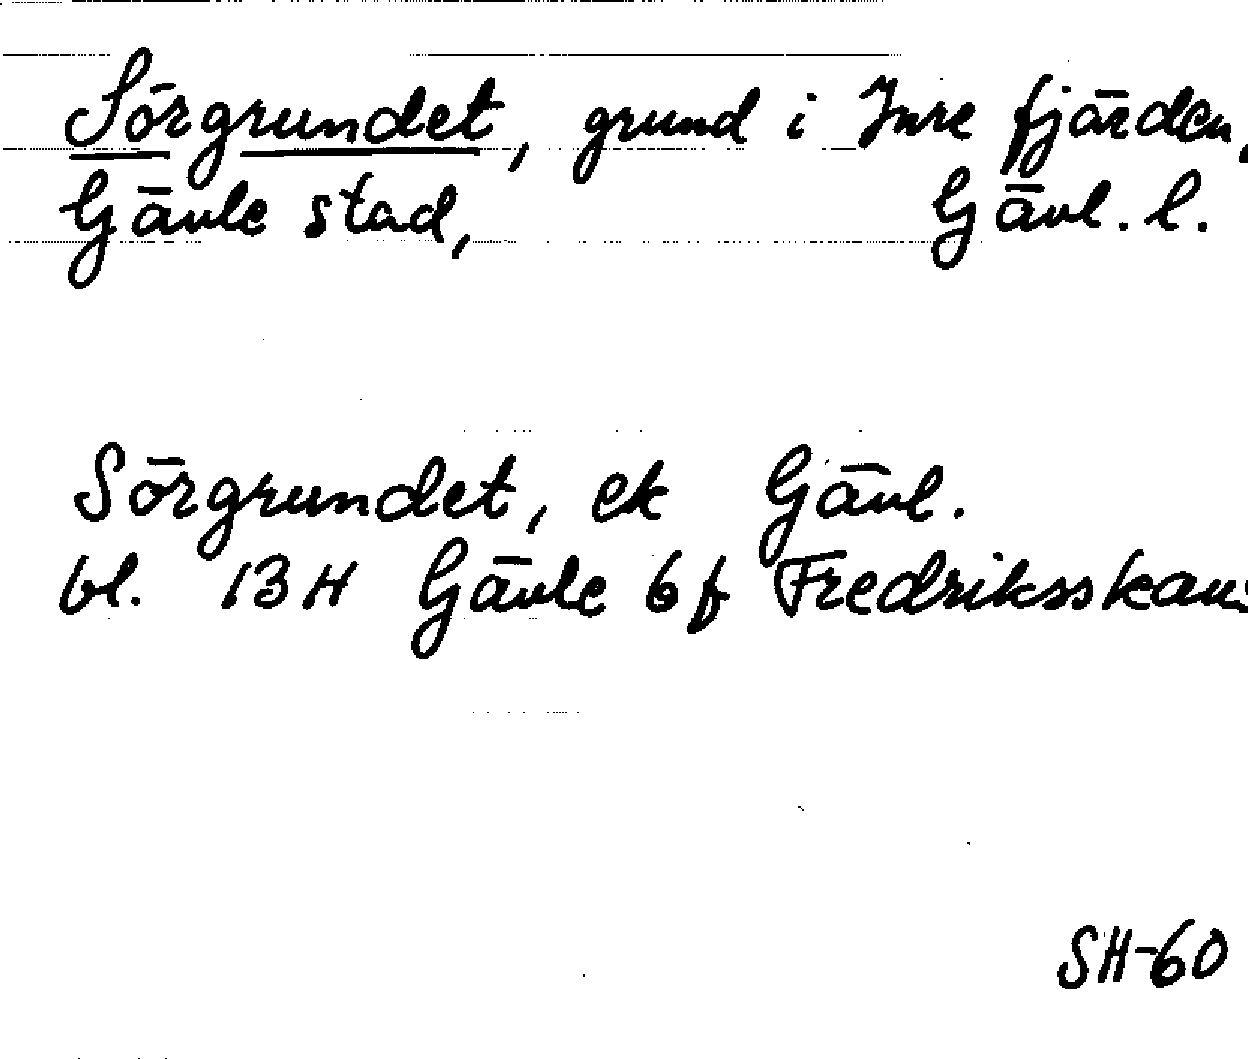 Sörgrundet, grund i Inre fjärden,
Gävle stad, Gävl. l.
Sörgrundet, ek Gävl.
bl. 13H Gävle 6f Fredriksskans
SH-60